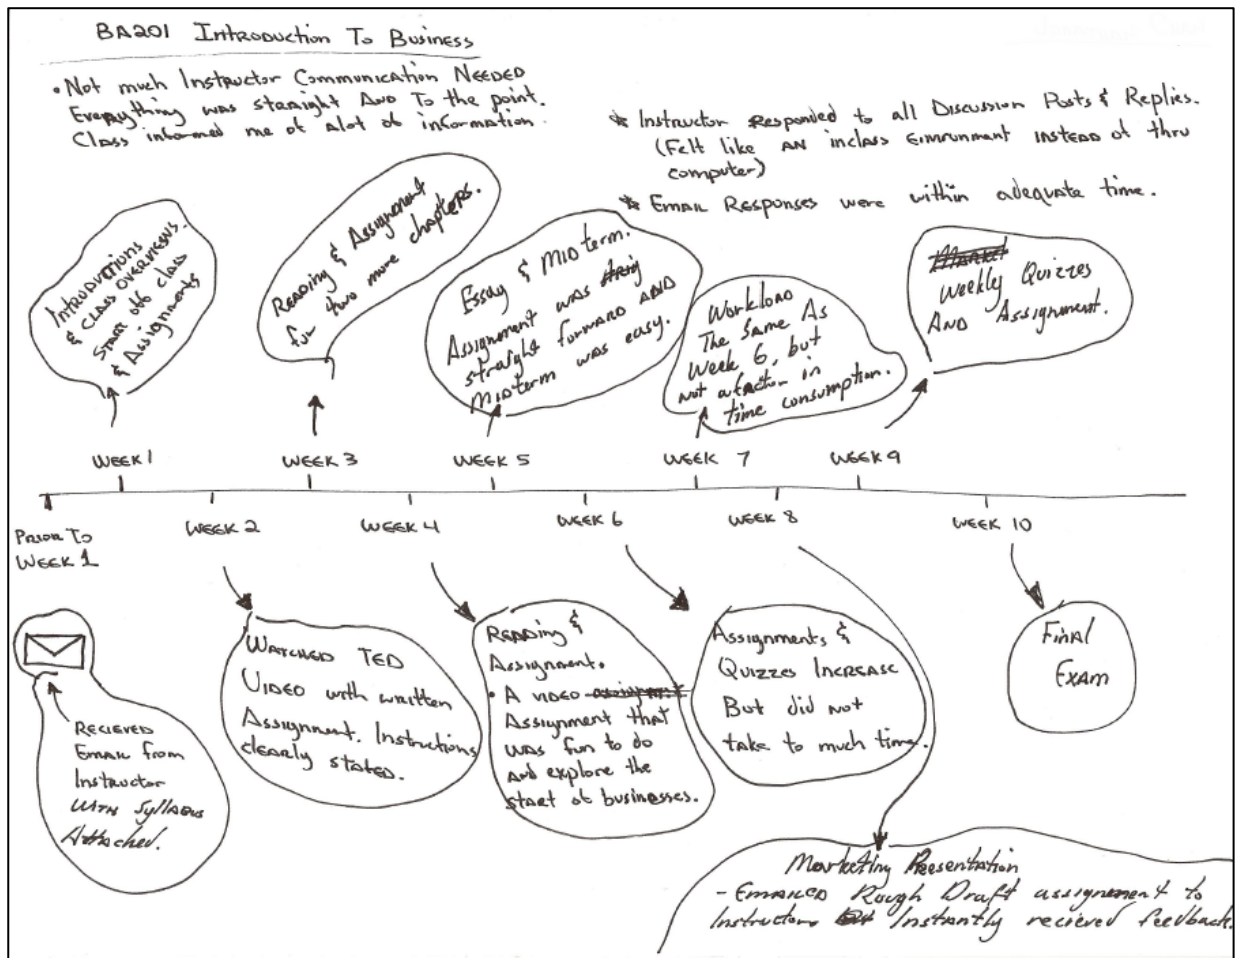 BA201 Introduction To Business
• Not much Instructor Communication Needed
Everything was straight And To the point.
Class informed me of alot of information.
* Instructor Responded to all Discussion Posts & Replies.
(Felt like an inclass Eivirunment instead of thru
computer)
* Email Responses were within adequate time.
Introductions
& class overviews.
Start off class
& Assignments
Reading & Assignement
for two more chapters.
Essay & Midterm.
Assignment was
straight forward and
Midterm was easy.
Workload
The Same As
Week 6, but
not a factor in
time consumption.
Weekly Quizzes
And Assignment.
Week 1
Week 3
Week 5
Week 7
Week 9
Prior To
Week 1
Week 2
Week 4
Week 6
Week 8
Week 10
Recieved
Email from
Instructor
with Syllabus
Attached.
Watched TED
Video with written
Assignment. Instructions
clearly stated.
Reading &
Assignment.
• A video
Assignment that
was fun to do
and explore the
start of businesses.
Assignments &
Quizzes Increase
But did not
take to much time.
Final
Exam
Marketing Presentation
- Emailed Rough Draft assignment to
Instructor Instantly recieved feedback.